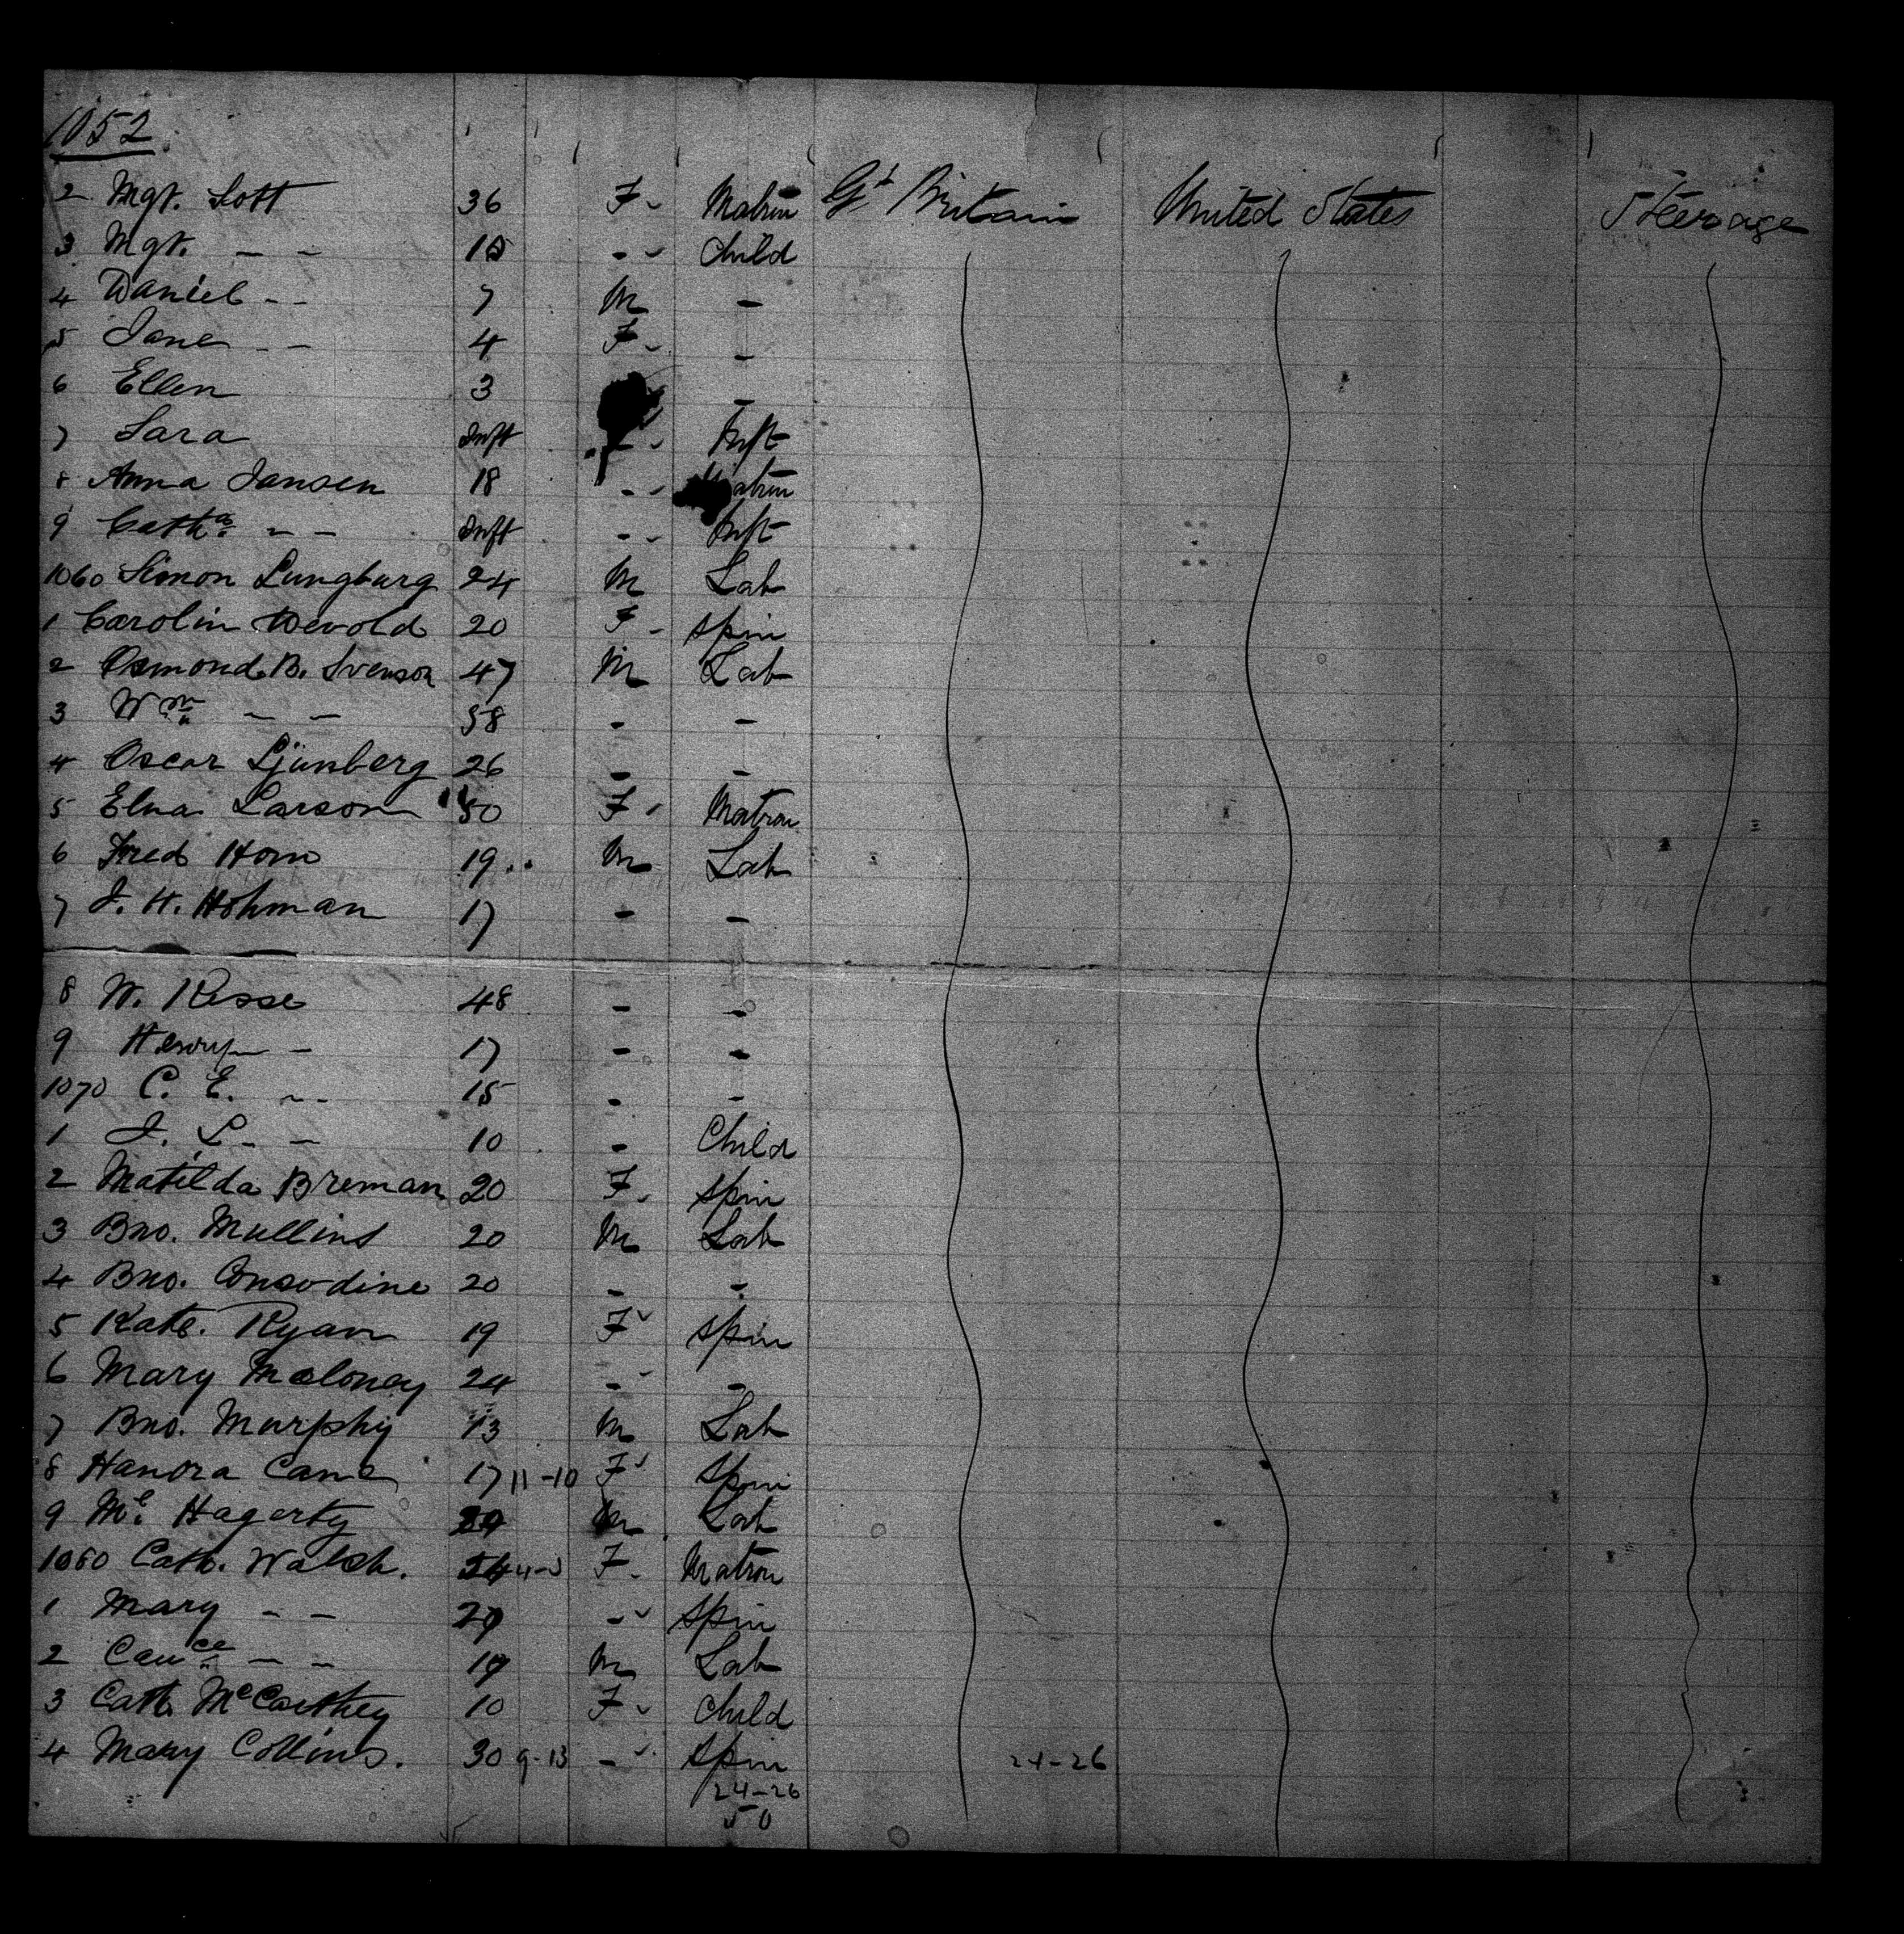 1052
2 Mgt. Lott 36 F - Matron Gt Britain United States Steerage
3 Mgt. - - 10 - - Child
4 Daniel - - 7 M -
5 Jane - - 4 F - -
6 Ellen 3 -
7 Sara Inft - - Inft
8 Anna Jansen 18 - - Matron
9 Catha - - Inft - - Inft
1060 Simon Lungburg 24 M Lab
1 Carolin Wevold 20 F - Spin
2 Osmond B. Svenson 47 M Lab
3 Wm - - 58 - -
4 Oscar Ljunberg 26 - -
5 Elna Larson 50 F Matron
6 Fred Horn 19 M Lab
7 J. H. Hohman 17 - -
8 W. Risse 48 - -
9 Henry - - 17 - -
1070 C. E. - - 15 - -
1 J. L. - - 10 - Child
2 Matilda Breman 20 F - Spin
3 Bno. Mullins 20 M Lab
4 Bno. Consodine 20 - -
5 Kate. Ryan 19 F Spin
6 Mary Moloney 24 - -
7 Bno. Murphy 13 M Lab
8 Hanora Cane 17 11-10 F Spin
9 Ml. Hagerty M Lab
1080 Cath. Walsh. F - Matron
1 Mary - - 20 - Spin
2 - - 19 M Lab
3 Cath McCarthey 10 F - Child
4 Mary Collins. 30 9-13 - Spin 24-26
24-26
50